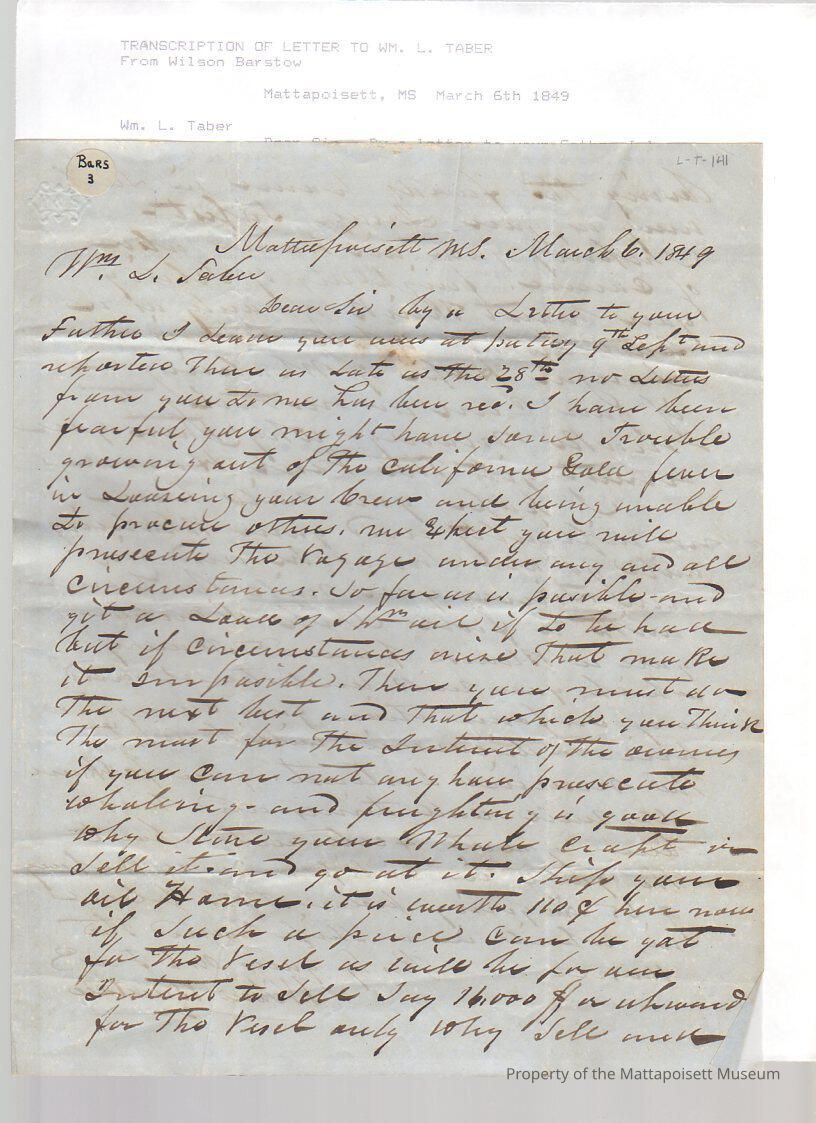 TRANSCRIPTION OF LETTER TO WM. L. TABER
From Wilson Barstow
Mattapoisett, MS March 6th 1849
Wm. L. Taber
BARS
3
L-T-141
Mattapoisett Ms. March 6. 1849
Wm. L. Taber
Dear Sir by a Letter to your
Father I Learn you was at 9th Sept and
reported There as Late as The 28th no Letters
from you to me has been recd. I have been
fearful you might have some Trouble
growing out of The California Gold fever
in Looseing your Crew and being unable
to procure others. we Expect you will
prosecute The Voyage under any and all
Circumstances. So far as is posible and
git a Load of oil if to be had
but if Circumstances arise That make
it Imposible. Then you must do
The next best and That which you Think
The most for The Interest of the owners
if you Can not any how prosecute
whaleing - and freighting is good
why Store your Whale Craft or
Sell it and go at it. Ship your
oil Home. it is worth 110¢ here now
if Such a price Can be got
for The Vesel as will be for our
Interest to Sell Say 16,000 $ or upward
for The Vesel only why Sell and
Property of the Mattapoisett Museum